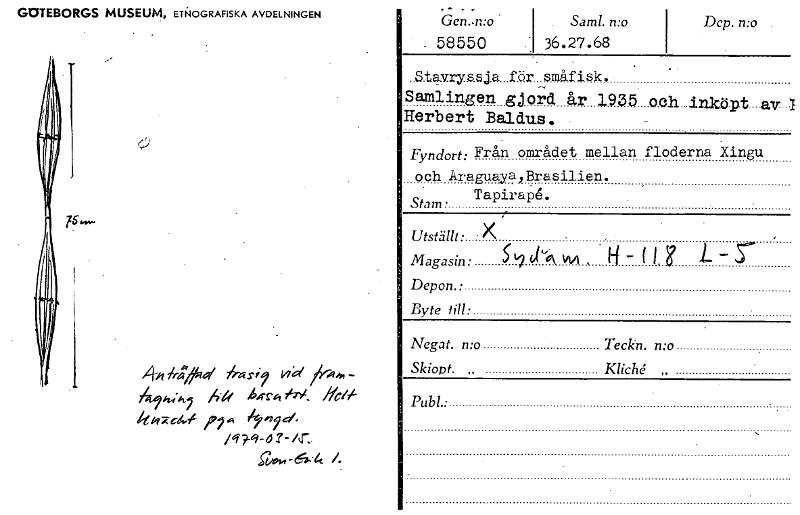 GÖTEBORGS MUSEUM, ETNOGRAFISKA AVDELNINGEN
75 cm
Anträffad trasig vid fram-
tagning till basutst. Helt
knäckt pga tyngd.
1979-03-15.
Sven-Erik I.
Gen. n:o Saml. n:o Dep. n:o
58550 36.27.68
Stavryssja för småfisk.
Samlingen gjord år 1935 och inköpt av
Herbert Baldus.
Fyndort: Från området mellan floderna Xingu
och Araguaya,Brasilien.
Stam: Tapirapé.
Utställt: X
Magasin: Sydam. H-118 L-5
Depon.:
Byte till:
Negat. n:o Teckn. n:o
Skiopt. „ Kliché „
Publ.: